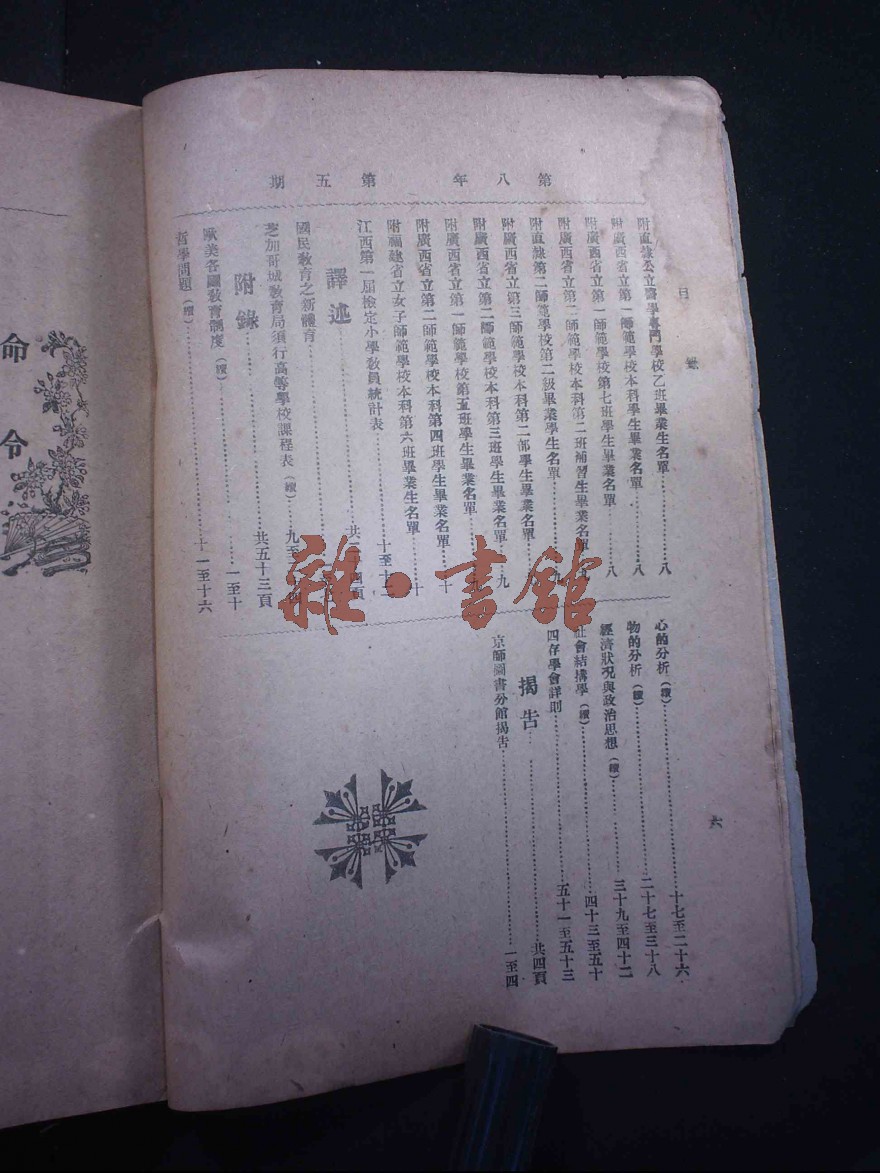 第八年 第五期
目錄
附直隸公立醫學專門學校乙班畢業生名單……八
附廣西省立第一師範學校本科學生畢業名單……八
附廣西省立第一師範學校第七班學生畢業名單……八
附廣西省立第二師範學校本科第二班補習生畢業名單
附直隸第二師範學校第二級畢業學生名單
附廣西省立第三師範學校本科第二部學生畢業名單……九
附廣西省立第二師範學校本科第三班學生畢業名單
附廣西省立第一師範學校第五班學生畢業名單
附廣西省立第二師範學校本科第四班學生畢業名單……十
附福建省立女子師範學校本科第六班畢業生名單……十
江西第一屆檢定小學教員統計表……十至十二
譯述
國民教育之新體育
芝加哥城教育局須行高等學校課程表(續)……九至
附錄……共五十三頁
歐美各國教育制度(續)……一至十
哲學問題(續)……十一至十六
心的分析(續)……十七至二十六
物的分析(續)……二十七至三十八
經濟狀況與政治思想(續)……三十九至四十二
社會結搆學(續)……四十三至五十
四存學會詳則……五十一至五十三
揭告……共四頁
京師圖書分館揭告……一至四
六
命令
雜·書館